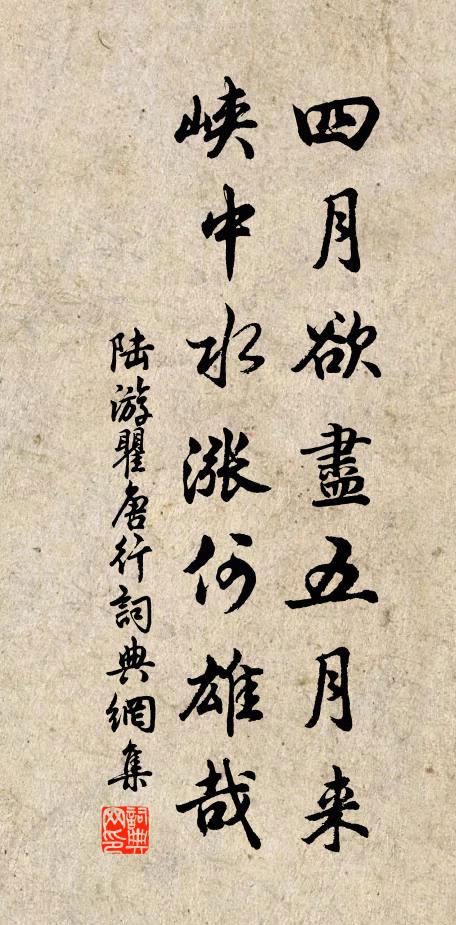 四月欲盡五月来
峡中水漲何雄哉
陆游瞿唐行詞典網集
詞典网印